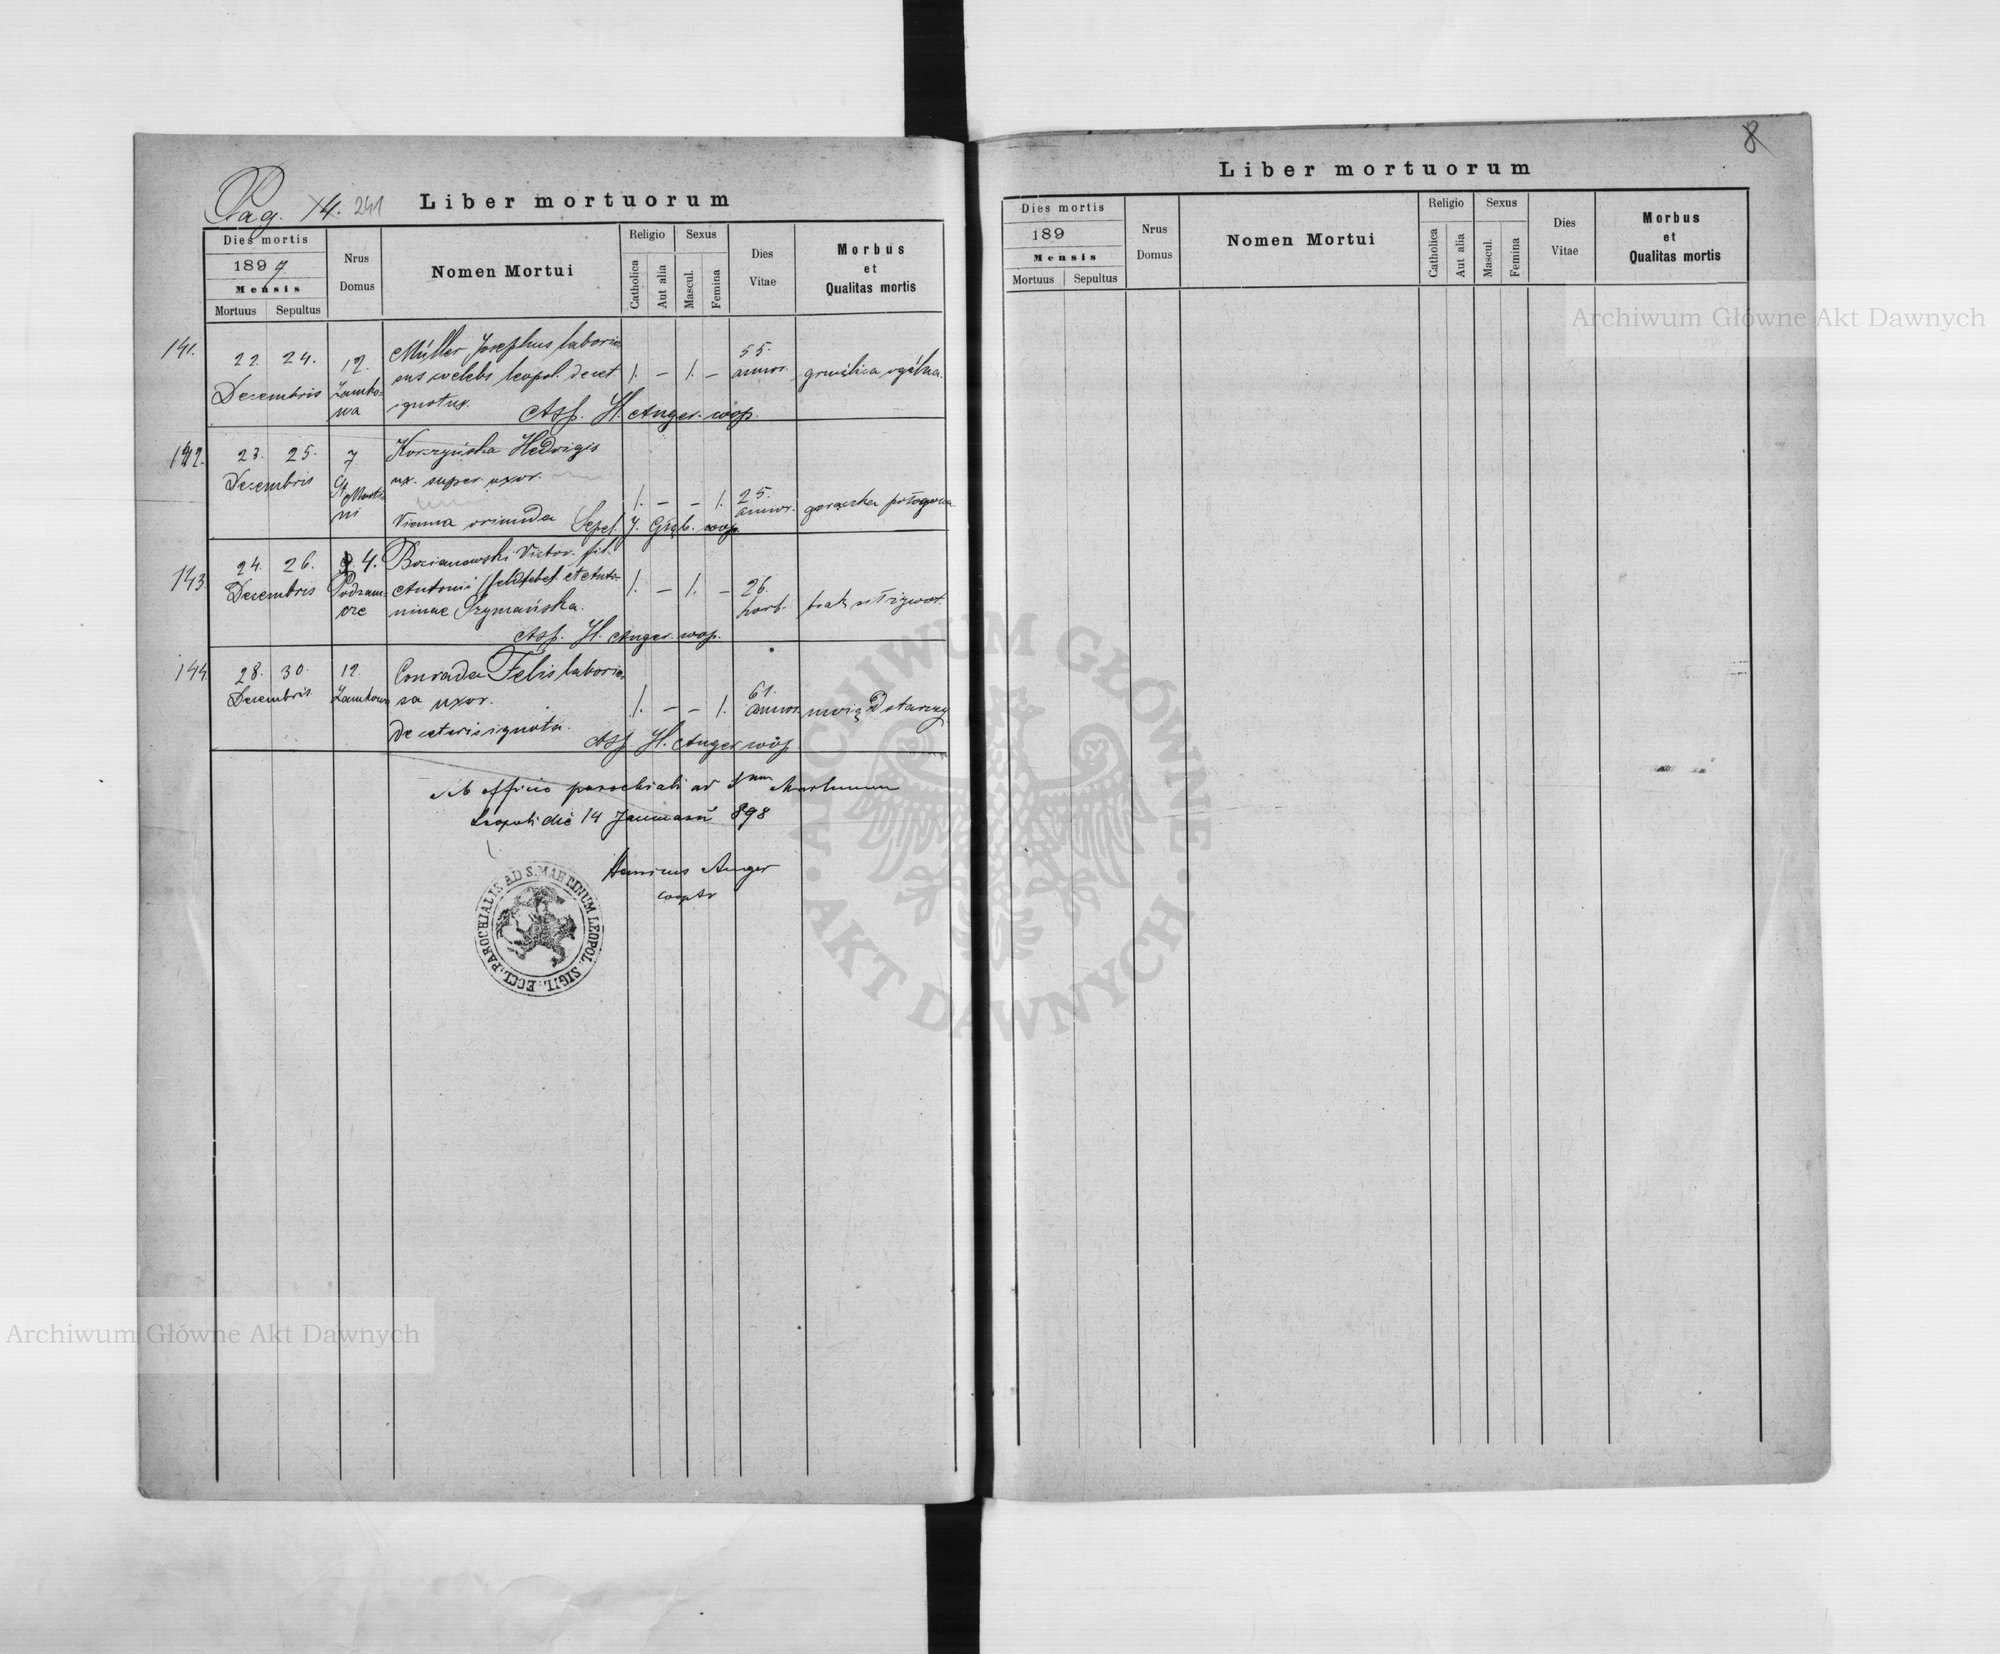 Pag. 14. 241
Liber mortuorum
Dies mortis
1897
Mensis
Mortuus
Sepultus
Nrus
Domus
Nomen Mortui
Religio
Catholica
Aut alia
Sexus
Mascul.
Femina
Dies
Vitae
Morbus
et
Qualitas mortis
141.
22. 24.
Decembris
12.
Zamko-
wa
Müller Josephus laborio
sus coelebs leopol. de cet.
ignotus.
1. — 1. —
55.
annor.
gruźlica ogólna.
Ass. H. Anger coop.
142.
23. 25.
Decembris
7
St Marti-
ni
Korzyńska Hedvigis
ux. super. uxor.
Vienna oriunda
1. — — 1.
25.
annor.
gorączka połogowa
Sepel. J. Głąb. coop.
143
24. 26.
Decembris
4.
Podzam-
cze
Bocianowski Victor. fil.
Antonii feldfebel et Anto-
ninae Szymańska.
1. — 1. —
26.
hor.
brak sił żywot.
Ass. H. Anger coop.
144.
28. 30.
Decembris
12.
Zamkowa
Conrada Felis laborio
sa uxor.
de ceteris ignota.
1. — — 1.
61.
annor.
uwiąd starczy
Ass. H. Anger coop.
Ab officio parochiali ad Snum Martinum
Leopoli die 14 Januarii 898
Henricus Anger
cooptr
ECCL. PAROCHIALIS AD S. MARTINUM LEOPOL. SIGIL.
8
Liber mortuorum
Dies mortis
189
Mensis
Mortuus
Sepultus
Nrus
Domus
Nomen Mortui
Religio
Catholica
Aut alia
Sexus
Mascul.
Femina
Dies
Vitae
Morbus
et
Qualitas mortis
Archiwum Główne Akt Dawnych
ARCHIWUM GŁÓWNE • AKT DAWNYCH •
Archiwum Główne Akt Dawnych